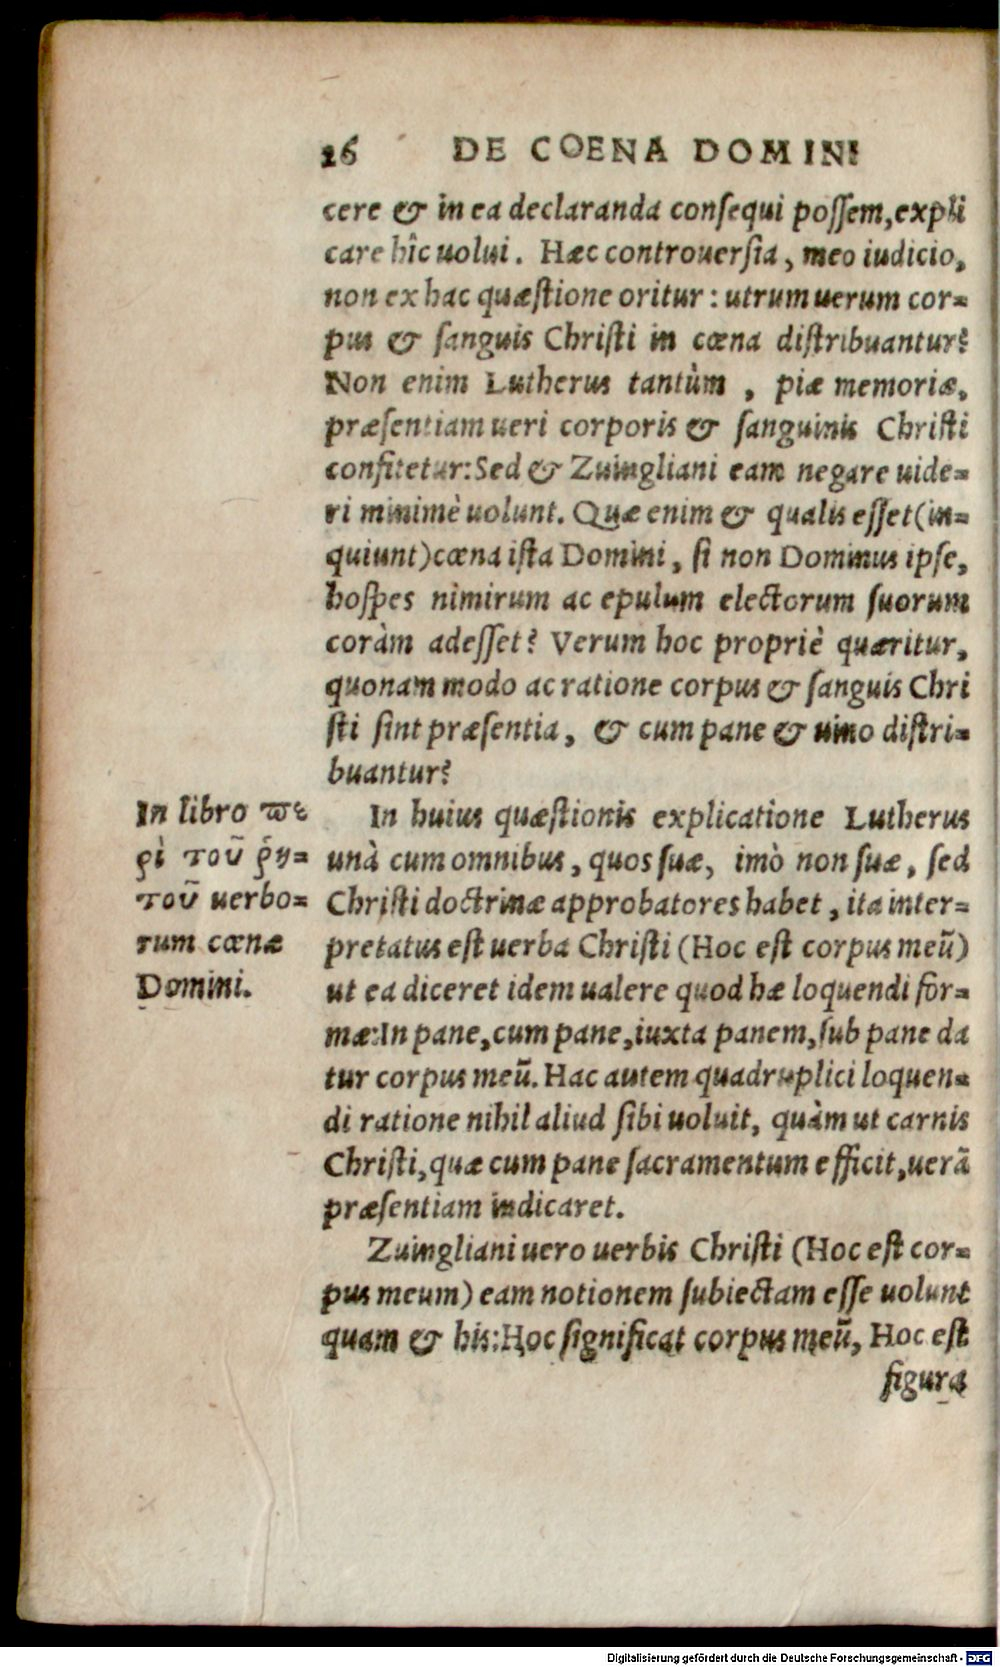 26 DE COENA DOMINI
cere & in ea declaranda consequi possem, expli
care hîc uolui. Hæc controuersia, meo iudicio,
non ex hac quæstione oritur: utrum uerum cor-
pus & sanguis Christi in cœna distribuantur?
Non enim Lutherus tantùm, piæ memoriæ,
præsentiam ueri corporis & sanguinis Christi
confitetur: Sed & Zuingliani eam negare uide-
ri minimè uolunt. Quæ enim & qualis esset (in-
quiunt) cœna ista Domini, si non Dominus ipse,
hospes nimirum ac epulum electorum suorum
coràm adesset? Verum hoc propriè quæritur,
quonam modo ac ratione corpus & sanguis Chri
sti sint præsentia, & cum pane & uino distri-
buantur?
In libro πε
ρὶ τοῦ ῥη-
τοῦ uerbo-
rum cœnæ
Domini.
In huius quæstionis explicatione Lutherus
unà cum omnibus, quos suæ, imò non suæ, sed
Christi doctrinæ approbatores habet, ita inter-
pretatus est uerba Christi (Hoc est corpus meũ)
ut ea diceret idem ualere quod hæ loquendi for-
mæ: In pane, cum pane, iuxta panem, sub pane da
tur corpus meũ. Hac autem quadruplici loquen-
di ratione nihil aliud sibi uoluit, quàm ut carnis
Christi, quæ cum pane sacramentum efficit, uerã
præsentiam indicaret.
Zuingliani uero uerbis Christi (Hoc est cor-
pus meum) eam notionem subiectam esse uolunt
quam & his: Hoc significat corpus meũ, Hoc est
figura
Digitalisierung gefördert durch die Deutsche Forschungsgemeinschaft - DFG